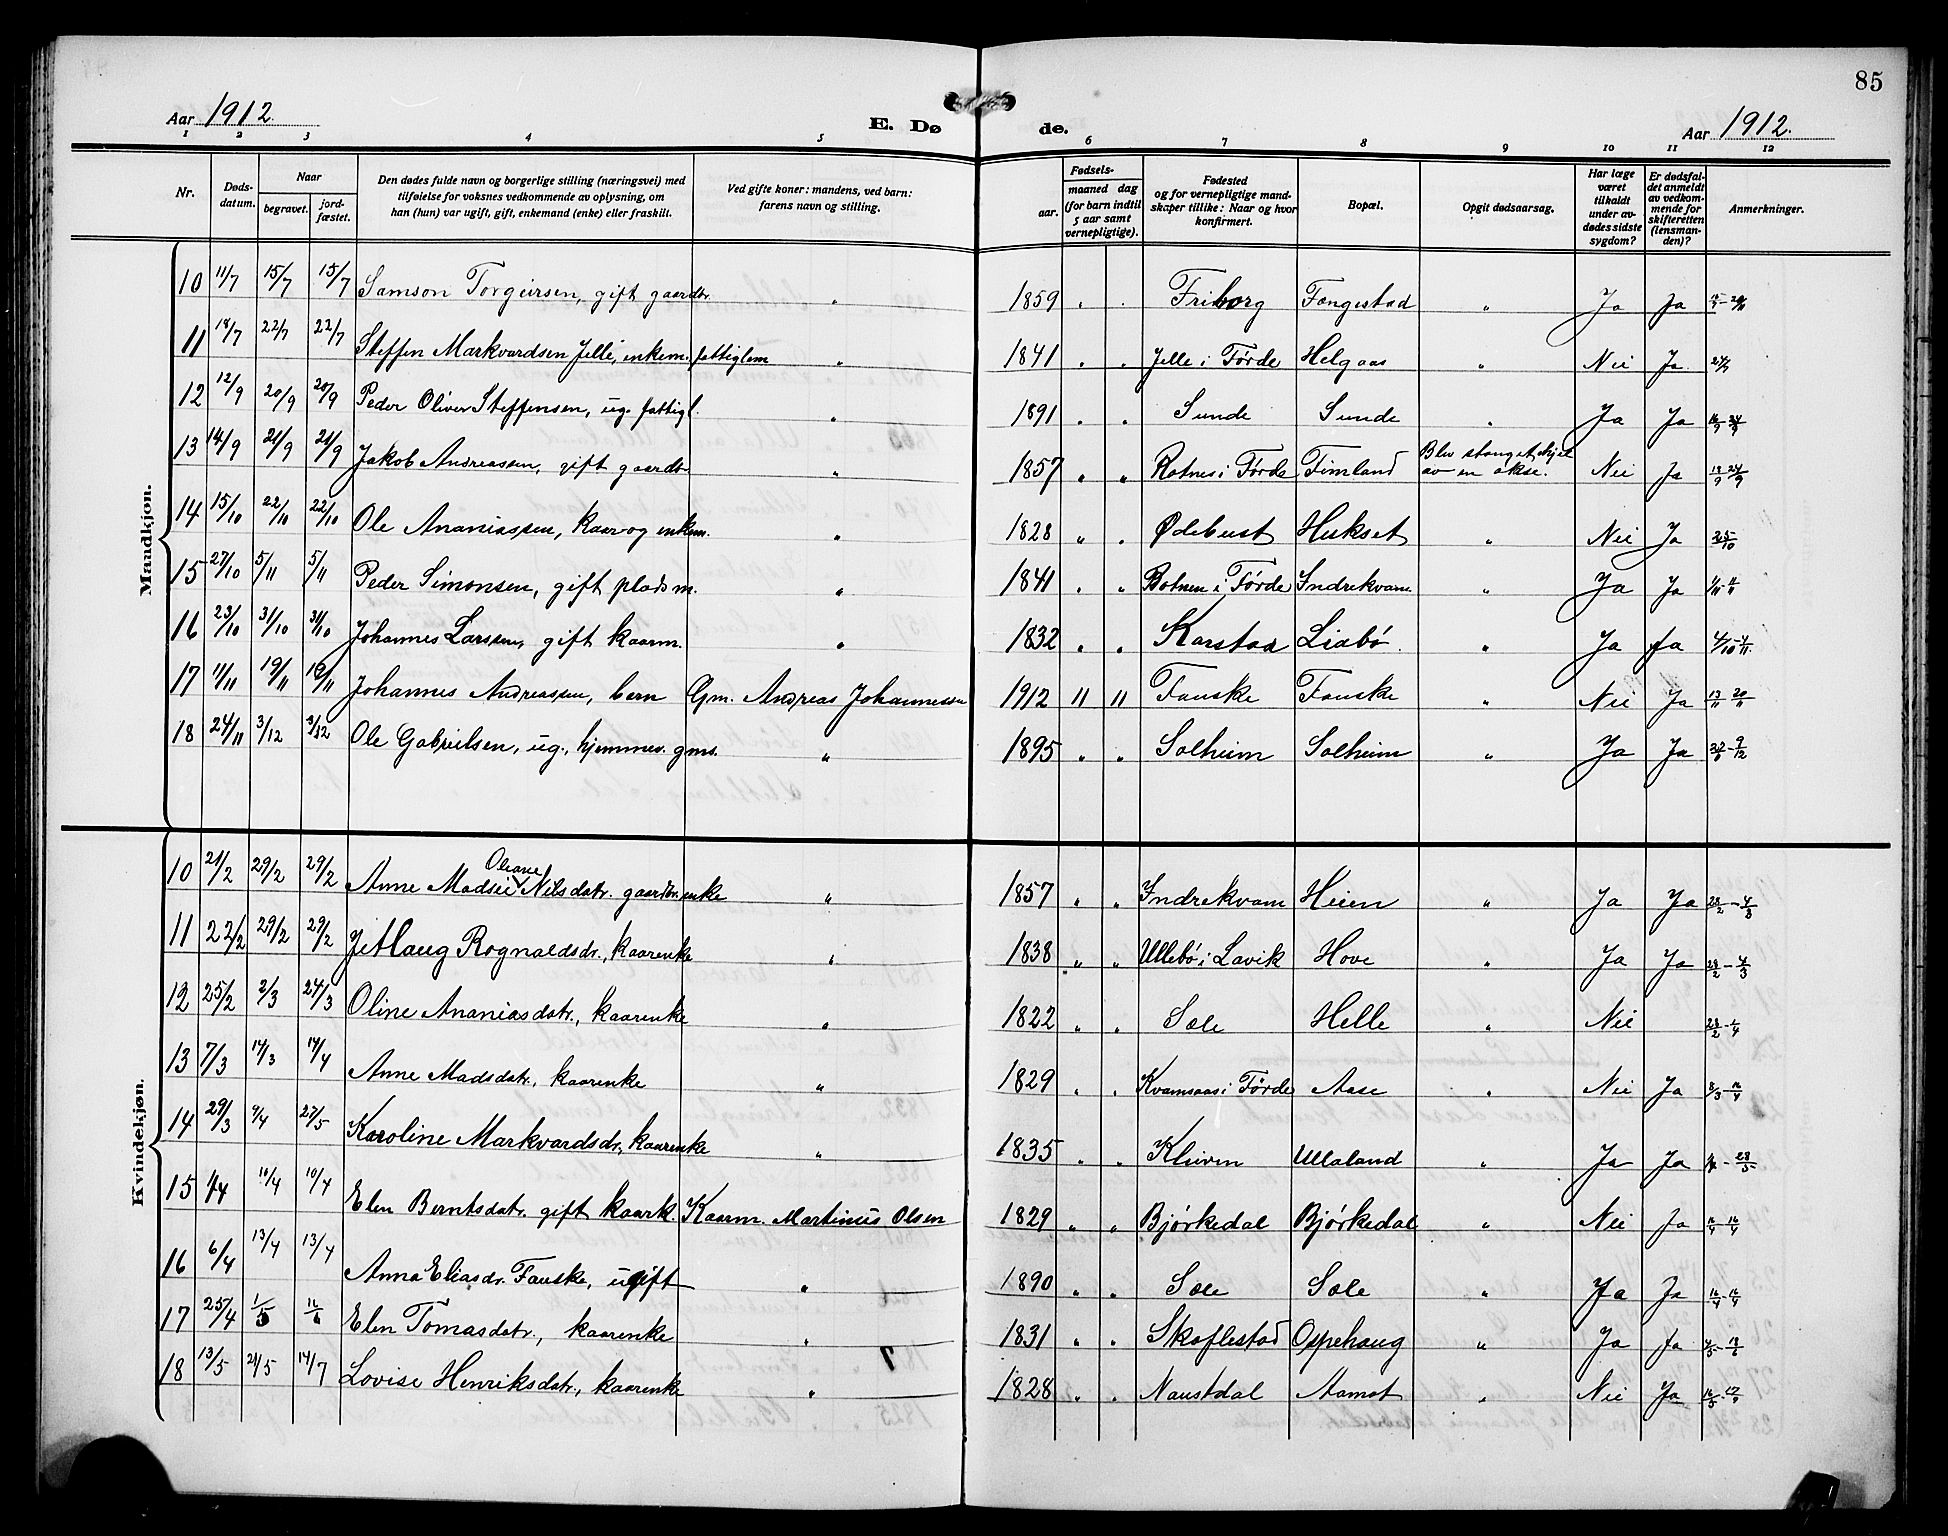 85
Aar 1912. E. Dø de. Aar 1912.
1 2 3 4 5 6 7 8 9 10 11 12
Nr. Døds-datum. Naar begravet. jord-fæstet. Den dødes fulde navn og borgerlige stilling (næringsvei) med tilføielse for voksnes vedkommende av oplysning, om han (hun) var ugift, gift, enkemand (enke) eller fraskilt. Ved gifte koner: mandens, ved barn: farens navn og stilling. Fødsels- aar. maaned dag (for barn indtil 5 aar samt vernepligtige). Fødested og for vernepligtige mand-skaper tillike: Naar og hvor konfirmert. Bopæl. Opgit dødsaarsag. Har læge været tilkaldt under av-dødes sidste sygdom? Er dødsfal-det anmeldt av vedkom-mende for skifteretten (lensman-den)? Anmerkninger.
Maandkjøn.
10 11/7 15/7 15/7 Samson Torgeirsen, gift gaardbr. " 1859 " " Friborg Tangestad " Ja Ja
11 18/7 22/7 22/7 Steffen Markvardsen Jelle, enkem. fattiglem " 1841 " " Jelle i Førde Helgaas " Nei Ja
12 12/9 20/9 20/9 Peder Oliver Steffensen, ug. fattigl. " 1891 " " Sunde Sunde " Ja Ja
13 14/9 21/9 21/9 Jakob Andreassen, gift gaardbr. " 1857 " " i Førde Timland Blev stanget ihjel av en okse. Nei Ja 18/9 24/9
14 15/10 22/10 22/10 Ole Ananiassen, kaar- og enkem. " 1828 " " Ødebust Hukset " Nei Ja 25/10
15 27/10 5/11 5/11 Peder Simonsen, gift pladsm. " 1841 " " Botnen i Førde Indrekvam " Ja Ja
16 23/10 31/10 31/10 Johannes Larssen, gift kaarm. " 1832 " " Karstad Liabø " Ja Ja
17 11/11 19/11 19/11 Johannes Andreassen, barn Gm. Andreas Johannessen 1912 11 11 Fauske Fauske " Nei Ja 13/11 20/11
18 24/11 3/12 3/12 Ole Gabrielsen, ug., hjemmev. gms. " 1895 " " Solheim Solheim " Ja Ja
Kvindekjøn.
10 21/2 29/2 29/2 Anne Madsei Oleane Nilsdatr. gaardbr. enke " 1857 " " Indrekvam Heien " Ja Ja 28/2 - 4/3
11 22/2 29/2 29/2 Rognaldsdr., kaarenke " 1838 " " Ullebø i Lavik Hove " Ja Ja 28/2 - 4/3
12 25/2 2/3 24/3 Oline Ananiasdatr., kaarenke " 1822 " " Sole Helle " Nei 28/2 - 1/4
13 7/3 14/3 14/4 Anne Madsdatr., kaarenke " 1829 " " Kvamsaas i Førde Aase " Nei Ja 8/3 - 16/4
14 29/3 9/4 27/5 Karoline Markvardsdr., kaarenke " 1835 " " Kleiven Ullaland " Ja Ja 28/5
15 1/4 10/4 10/4 Elen Berntsdatr. gift kaark. Kaarm. Martinus Olsen 1829 " " Bjørkedal Bjørkedal " Nei Ja 16/4 - 16/4
16 6/4 13/4 13/4 Anna Eliasdr. Fauske, ugift " 1890 " " Sole Sole " Ja Ja 16/4 - 16/4
17 25/4 1/5 16/6 Elen Tomasdatr., kaarenke " 1831 " " Skaflestad Oppehaug " Ja Ja 4/5 - 18/6
18 13/5 21/5 14/7 Lovise Henriksdatr., kaarenke " 1828 " " Naustdal Aamot " Nei Ja